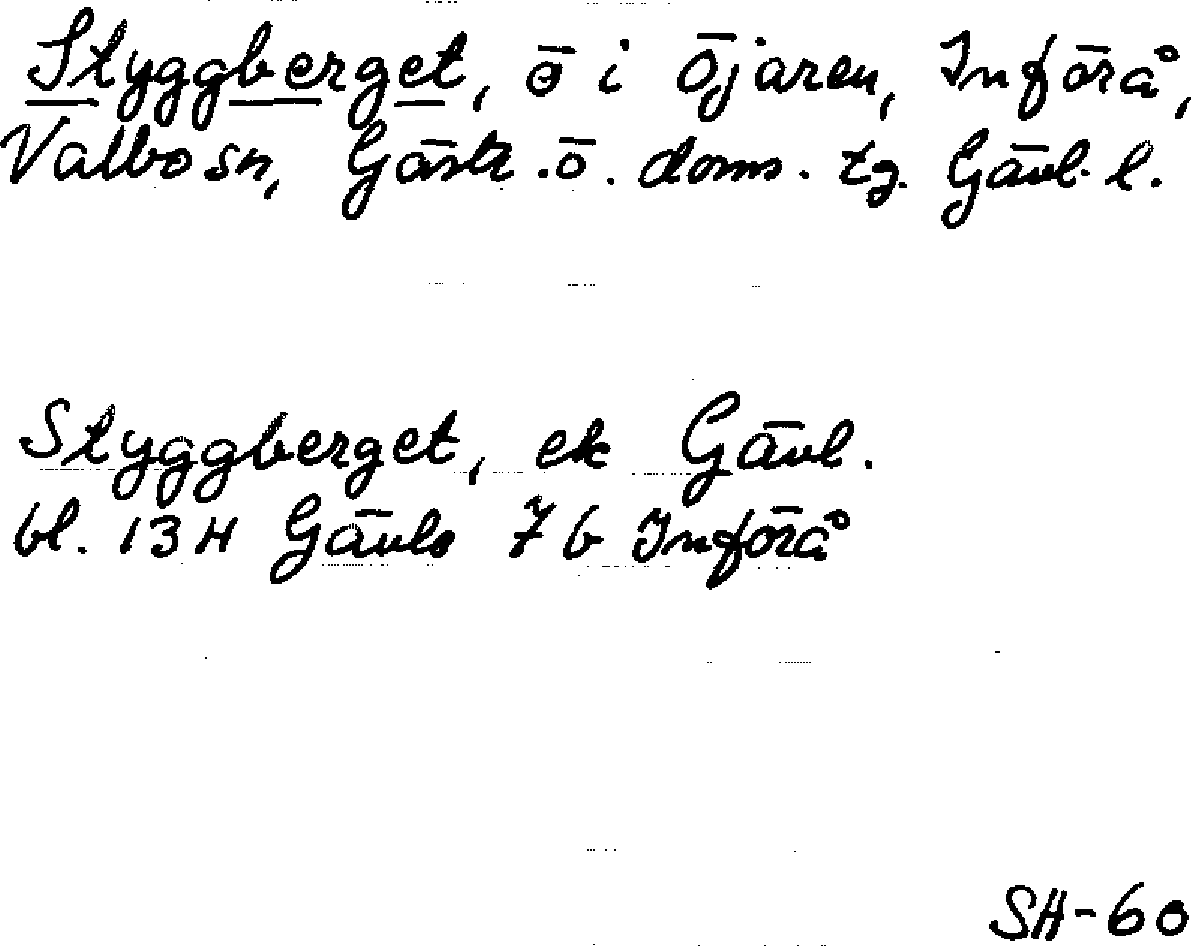 Styggberget, ö i Öjaren, Inför å,
Valbo sn, Gästr. ö. doms. tg. Gävl. l.
Styggberget, ek Gävl.
bl. 13H Gävle 7b Införå
SH-60